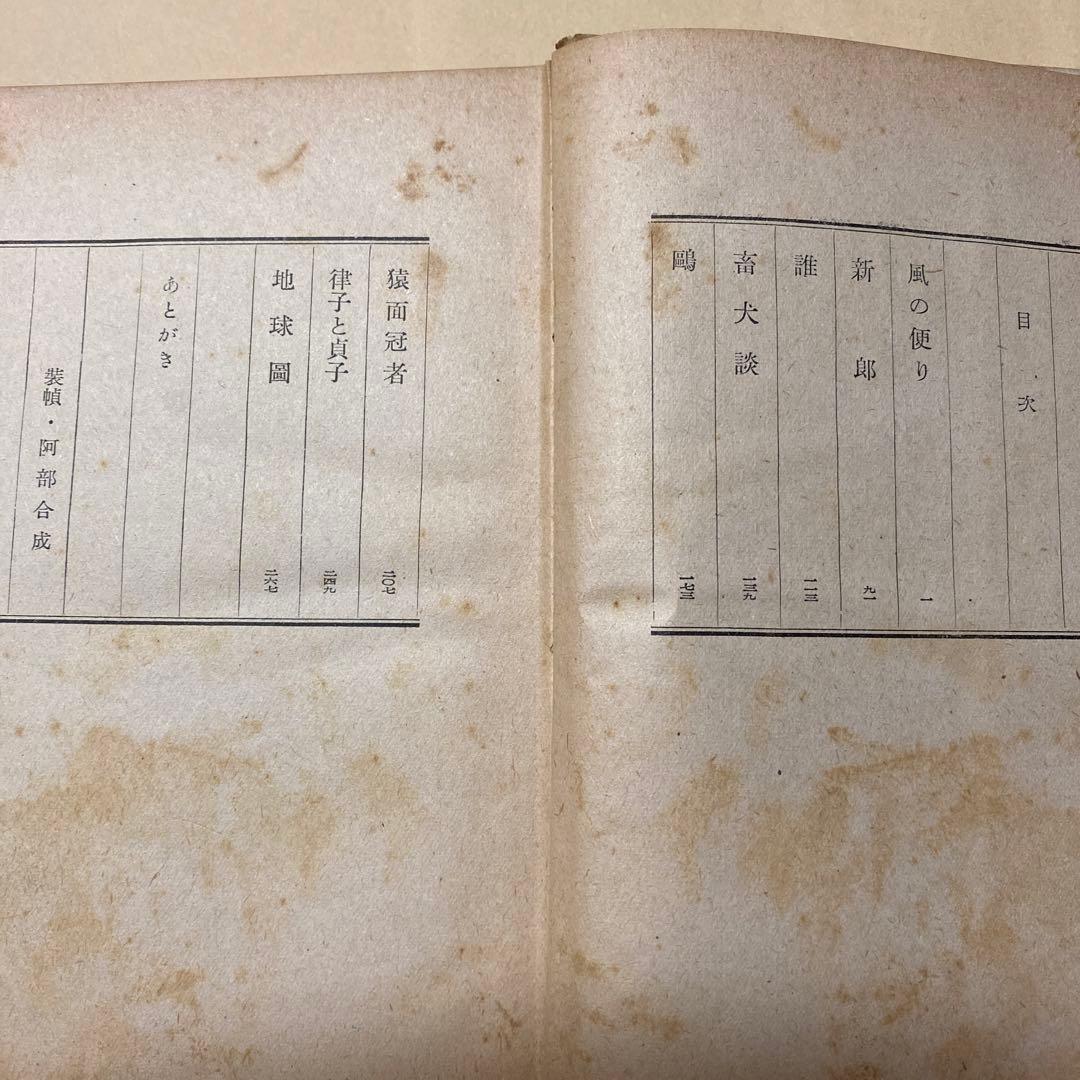 目次
風の便り 一
新郎 九一
誰 一一三
畜犬談 一三九
鷗 一七三
猿面冠者 二〇七
律子と貞子 二四九
地球圖 二六七
あとがき
裝幀・阿部合成